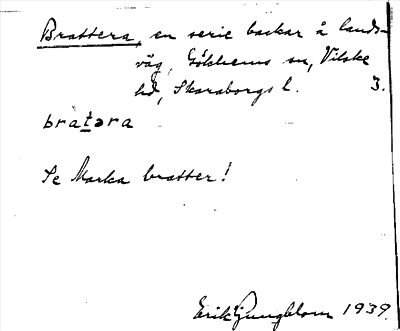 Brattera, en serie backar å lands-
väg, Gökhems sn, Vilske
hd, Skaraborgs l. 3.
bratəra
Se Marka bratter!
Erik Ljungblom 1939.